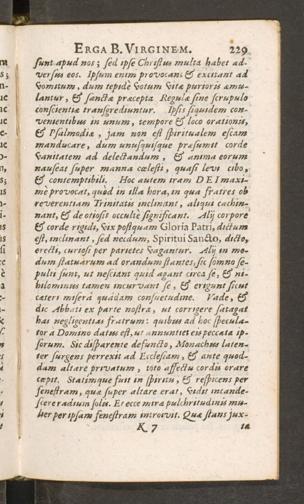 ERGA B. VIRGINEM. 229
sunt apud nos; sed ipse Christus multa habet ad-
versus eos. Ipsum enim provocant & excitant ad
vomitum, dum tepidè votum vitæ purioris amu-
lantur, & sanctæ præcepta Regulæ sine scrupulo
conscientiæ transgrediuntur. Ipsis siquidem con-
venientibus in unum, tempore & loco orationis,
& Psalmodiæ, jam non est spiritualem escam
manducare, dum unusquisque præsumit corde
vanitatem ad delectandum, & anima eorum
nauseat super manna cælesti, quasi levi cibo,
& contemptibili. Hoc autem iram DEI maxi-
mè provocat, quòd in illa hora, in qua fratres ob
reverentiam Trinitatis inclinant, aliqui cachin-
nant, & de otiosis occultè significant. Alij corpore
& corde rigidi, vix postquam Gloria Patri, dictum
est, inclinant, sed necdum, Spiritui Sancto, dicto,
erecti, curiosè per parietes vagantur. Alij in mo-
dum statuarum ad orandum stantes, sic somno se-
pulti sunt, ut nesciant quid agant circa se, & ni-
hilominus tamen incurvant se, & erigunt sicut
cæteri miserâ quâdam consuetudine. Vade, &
dic Abbati ex parte nostra, ut corrigere satagat
has negligentias fratrum: quibus ad hoc specula-
tor a Domino datus est, ut annuntiet eis peccata ip-
sorum. Sic disparente defuncto, Monachus laten-
ter surgens perrexit ad Ecclesiam, & ante quod-
dam altare privatum, toto affectu cordis orare
cæpit. Statimque fuit in spiritu, & respiciens per
fenestram, quæ super altare erat, vidit incande-
scere radium solis. Et ecce mira pulchritudinis mu-
lier per ipsam fenestram introivit. Quæ stans jux-
K 7 ta